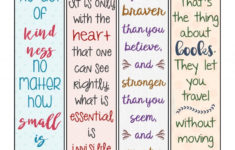 act of
kind
ness no
matter
how
small is
It is only
with the
heart that
one can
see rightly
what is
essential
is
invisible
braver
than you
believe,
and
stronger
than you
seem,
and
That's
the thing
about
books.
They let
you
travel
without
moving